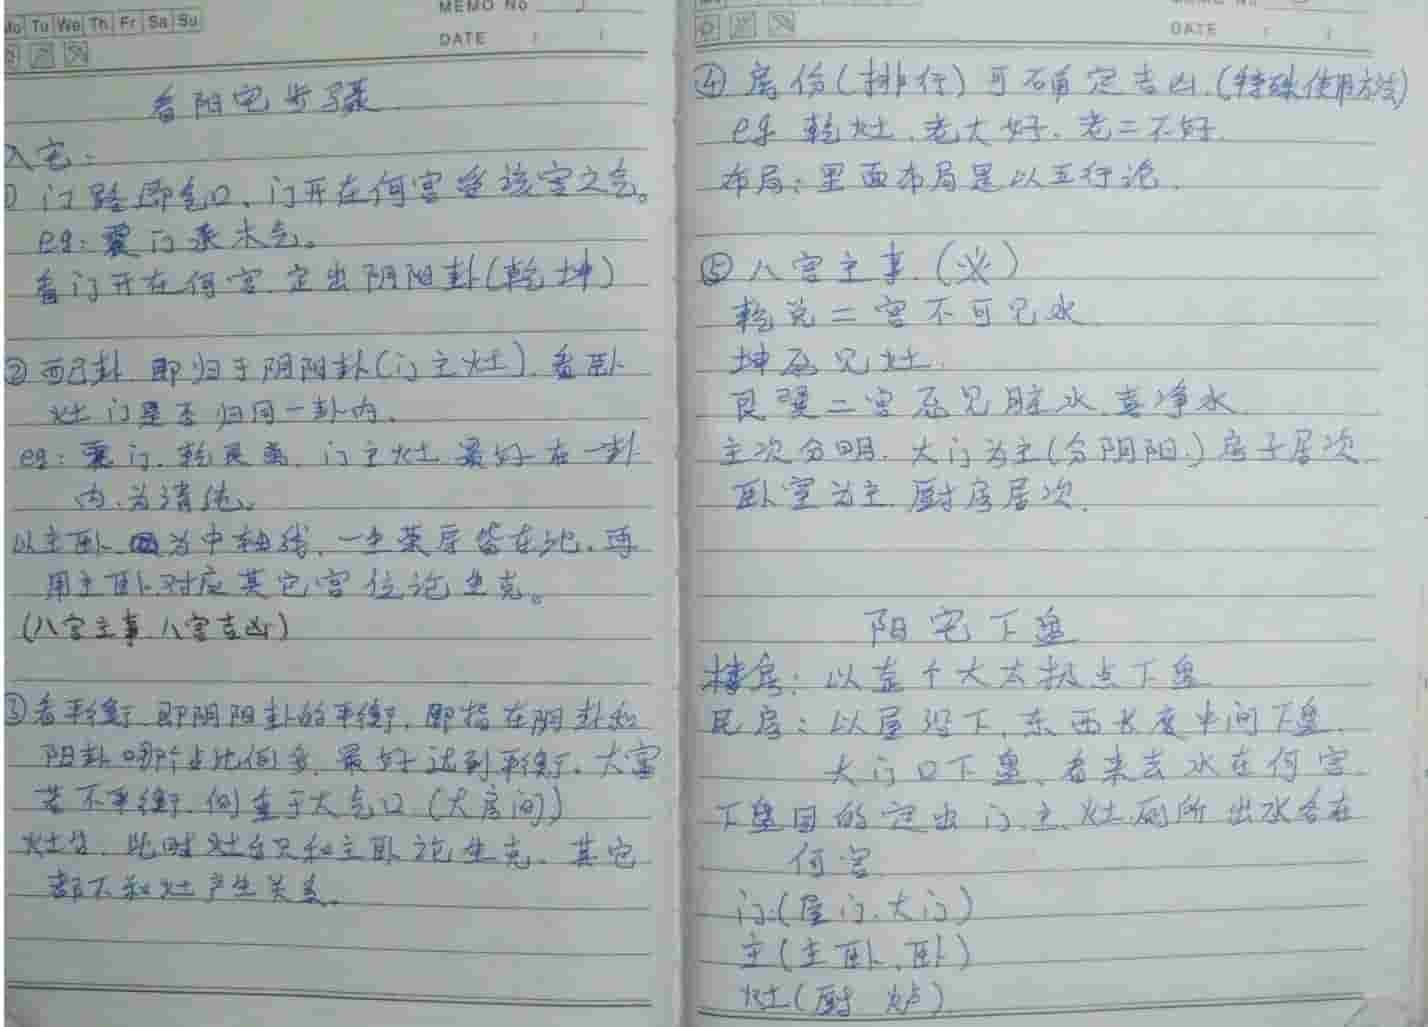 Mo Tu We Th Fr Sa Su
MEMO No
DATE / /
看阳宅步骤
入宅:
① 门路即气口、门开在何宫坐该宫之气。
eg: 震门乘木气。
看门开在何宫.定出阴阳卦(乾坤)
② 配卦 即归于阴阳卦(门主灶).看卧
灶门是否归同一卦内.
eg: 震门.乾艮离.门主灶 最好在一卦
内.为清纯。
以主卧 为中轴线.一生荣辱皆在此.再
用主卧对应其它宫位论生克。
(八宫主事.八宫吉凶)
③ 看平衡 即阴阳卦的平衡.即指在阴卦和
阳卦哪个占比例多.最好达到平衡.大富
若不平衡.侧重于大气口(大房间)
灶台.此时灶台只和主卧论生克.其它
都不和灶产生关系.
DATE / /
④ 房份(排行)可确定吉凶.(特殊使用方法)
eg 乾灶.老大好.老二不好.
布局:里面布局是以五行论.
⑤ 八宫主事.(火)
乾兑二宫不可见水
坤忌见灶.
艮巽二宫忌见脏水.喜净水
主次分明.大门为主(分阴阳.)房子居次
卧室为主.厨房居次.
阳宅下盘
楼房:以整个大太极点下盘
民房:以屋沿下.东西长度中间下盘.
大门口下盘、看来去水在何宫
下盘目的定出门.主.灶.厕所出水各在
何宫
门:(屋门.大门)
主(主卧.卧)
灶(厨 炉)